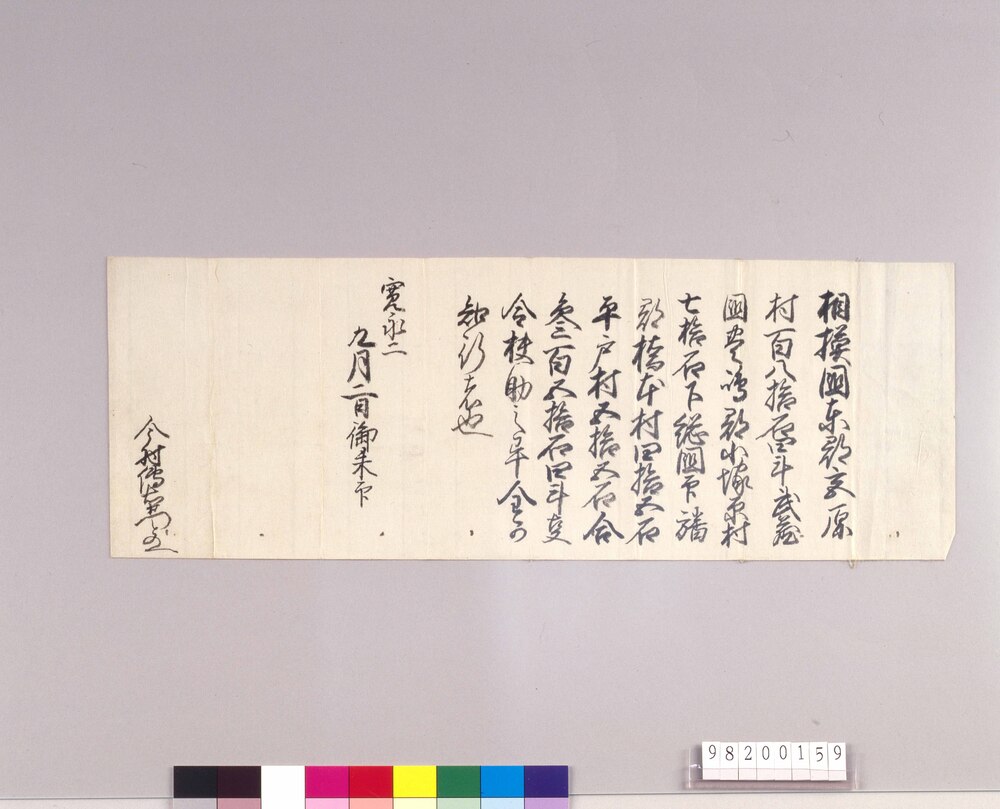 相摸國東郡 原
村百八拾石四斗武蔵
國豊嶋郡小塚原村
七拾石下総國印旛
郡橋本村四拾五石
平戸村五拾五石合
参百五拾石四斗事
令扶助之畢全可
知行者也
寛永二
九月二日御朱印
今村傳
98200159